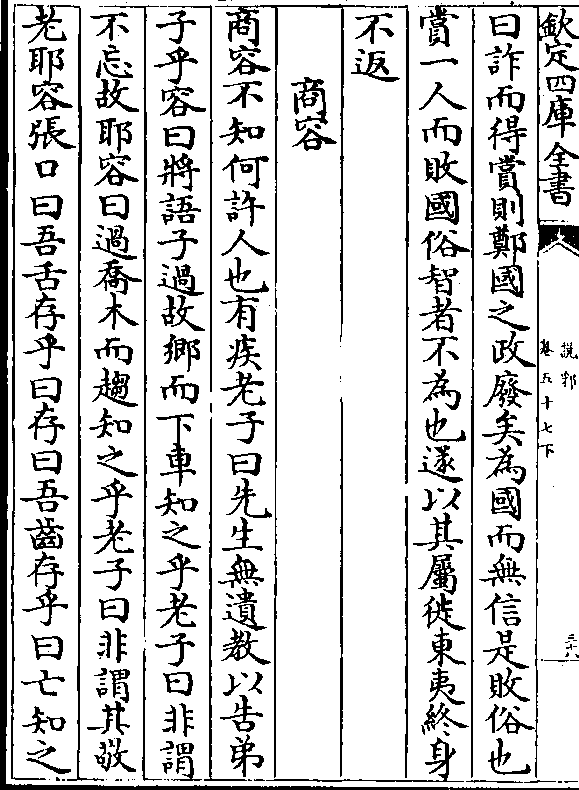 欽定四庫全書
說郛
卷五十七下
三十八
曰詐而得賞則鄭國之政廢矣為國而無信是敗俗也
賞一人而敗國俗智者不為也遂以其屬徙東夷終身
不返
商容
商容不知何許人也有疾老子曰先生無遺教以告弟
子乎容曰將語子過故鄉而下車知之乎老子曰非謂
不忘故耶容曰過喬木而趨知之乎老子曰非謂其敬
老耶容張口曰吾舌存乎曰存曰吾齒存乎曰亡知之